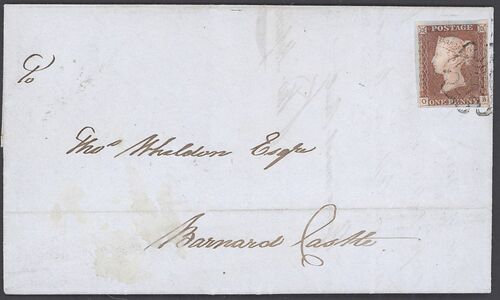 POSTAGE
ONE PENNY
To
Thos Wheldon Esqre
Barnard Castle